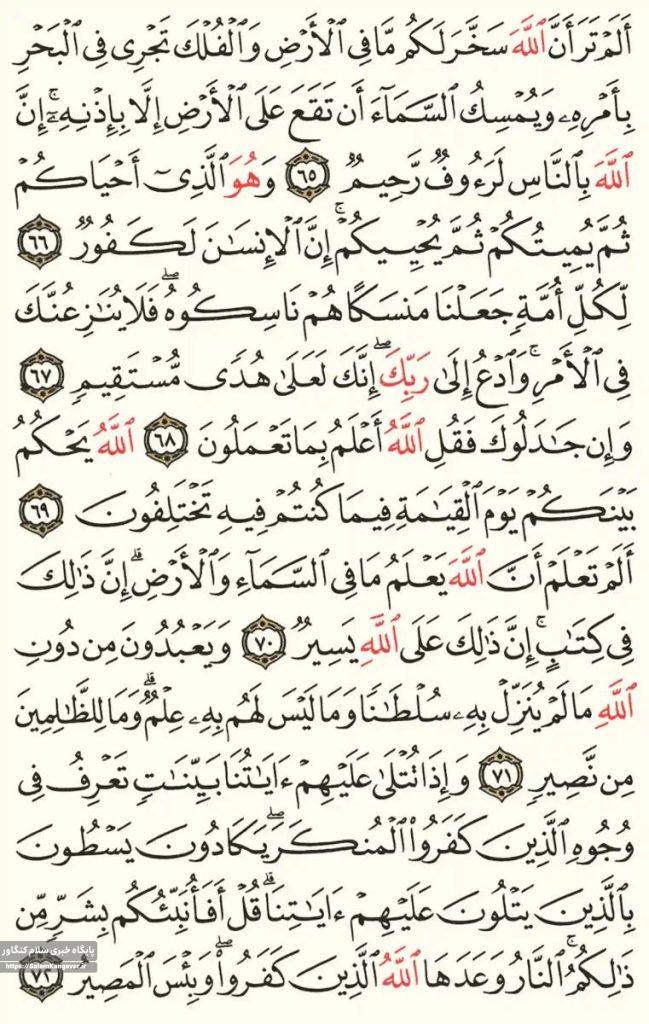 أَلَمْ تَرَ أَنَّ ٱللَّهَ سَخَّرَ لَكُم مَّا فِي ٱلْأَرْضِ وَٱلْفُلْكَ تَجْرِي فِي ٱلْبَحْرِ
بِأَمْرِهِۦ وَيُمْسِكُ ٱلسَّمَآءَ أَن تَقَعَ عَلَى ٱلْأَرْضِ إِلَّا بِإِذْنِهِۦٓۗ إِنَّ
ٱللَّهَ بِٱلنَّاسِ لَرَءُوفٌ رَّحِيمٌ ٦٥ وَهُوَ ٱلَّذِىٓ أَحْيَاكُمْ
ثُمَّ يُمِيتُكُمْ ثُمَّ يُحْيِيكُمْۗ إِنَّ ٱلْإِنسَٰنَ لَكَفُورٌ ٦٦
لِّكُلِّ أُمَّةٍ جَعَلْنَا مَنسَكًا هُمْ نَاسِكُوهُۖ فَلَا يُنَٰزِعُنَّكَ
فِي ٱلْأَمْرِۚ وَٱدْعُ إِلَىٰ رَبِّكَۖ إِنَّكَ لَعَلَىٰ هُدًى مُّسْتَقِيمٍ ٦٧
وَإِن جَٰدَلُوكَ فَقُلِ ٱللَّهُ أَعْلَمُ بِمَا تَعْمَلُونَ ٦٨ ٱللَّهُ يَحْكُمُ
بَيْنَكُمْ يَوْمَ ٱلْقِيَٰمَةِ فِيمَا كُنتُمْ فِيهِ تَخْتَلِفُونَ ٦٩
أَلَمْ تَعْلَمْ أَنَّ ٱللَّهَ يَعْلَمُ مَا فِي ٱلسَّمَآءِ وَٱلْأَرْضِۗ إِنَّ ذَٰلِكَ
فِي كِتَٰبٍۚ إِنَّ ذَٰلِكَ عَلَى ٱللَّهِ يَسِيرٌ ٧٠ وَيَعْبُدُونَ مِن دُونِ
ٱللَّهِ مَا لَمْ يُنَزِّلْ بِهِۦ سُلْطَٰنًا وَمَا لَيْسَ لَهُم بِهِۦ عِلْمٌۗ وَمَا لِلظَّٰلِمِينَ
مِن نَّصِيرٍ ٧١ وَإِذَا تُتْلَىٰ عَلَيْهِمْ ءَايَٰتُنَا بَيِّنَٰتٍ تَعْرِفُ فِي
وُجُوهِ ٱلَّذِينَ كَفَرُوا۟ ٱلْمُنكَرَۖ يَكَادُونَ يَسْطُونَ
بِٱلَّذِينَ يَتْلُونَ عَلَيْهِمْ ءَايَٰتِنَاۗ قُلْ أَفَأُنَبِّئُكُم بِشَرٍّ مِّن
ذَٰلِكُمُۚ ٱلنَّارُ وَعَدَهَا ٱللَّهُ ٱلَّذِينَ كَفَرُوا۟ۖ وَبِئْسَ ٱلْمَصِيرُ ٧٢
پایگاه خبری سلام کنگاور
https://SalamKangavar.ir